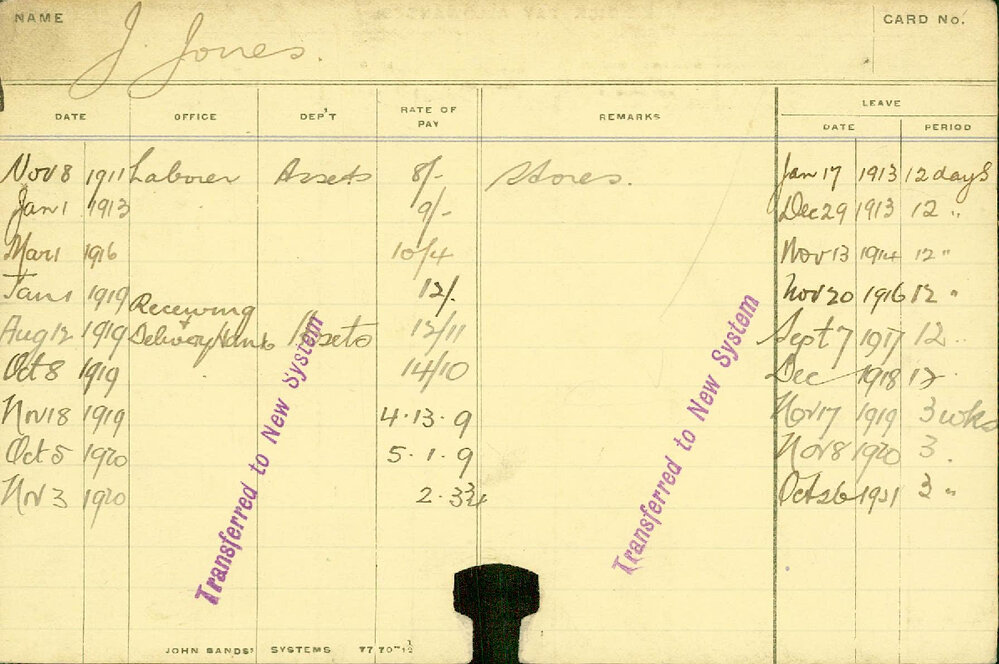 NAME J. Jones. CARD No.
LEAVE
DATE OFFICE DEP'T RATE OF PAY REMARKS DATE PERIOD
Nov 8 1911 Laborer Assets 8/- Stores. Jan 17 1913 12 days
Jan 1 1913 9/- Dec 29 1913 12 "
Mar 1 1916 10/4 Nov 13 1914 12 "
Jan 1 1919 12/. Nov 20 1916 12 "
Receiving
Aug 12 1919 & Delivery Hand Assets 12/11 Sept 7 1917 12 "
Oct 8 1919 14/10 Dec 1918 12 "
Nov 18 1919 4.13.9 Nov 17 1919 3 wks
Oct 5 1920 5.1.9 Nov 8 1920 3 "
Nov 3 1920 2.3¾ Oct 26 1921 3 "
Transferred to New System
Transferred to New System
JOHN SANDS' SYSTEMS